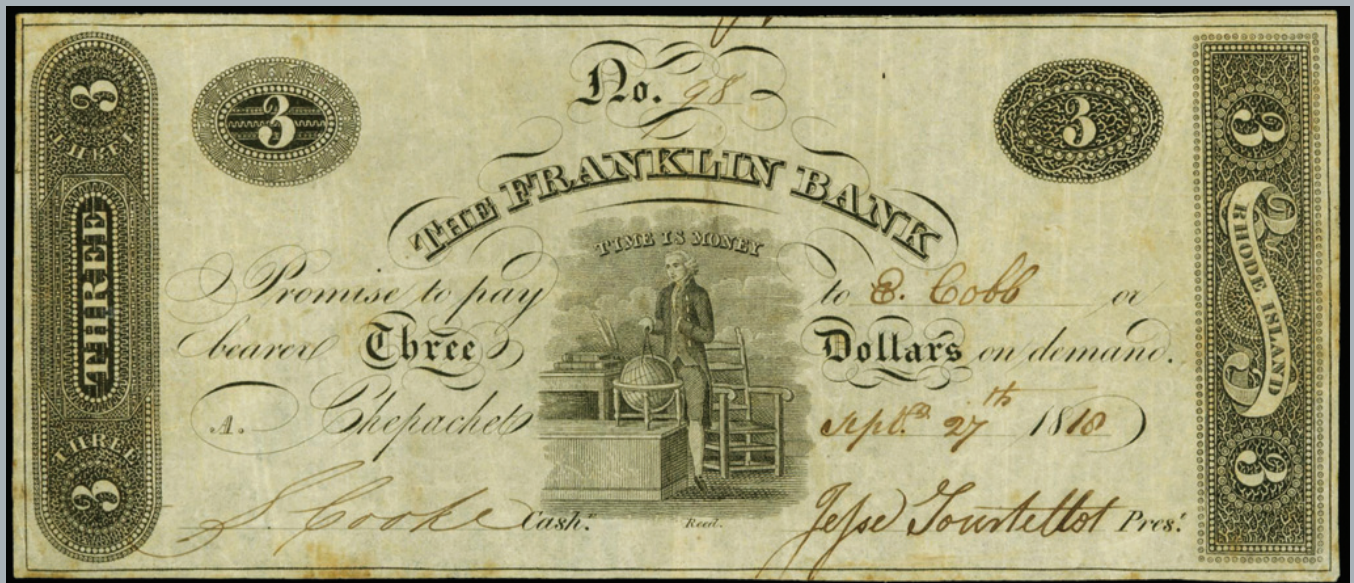 3
THREE
THREE
THREE
3
3
No. 98
3
THE FRANKLIN BANK
TIME IS MONEY
Promise to pay to E. Cobb or
bearer Three Dollars on demand.
Chepachet Sept. 27th 1818
S. Cooke Cash.r Reed. Jesse Tourtellot Pres.t
3
RHODE ISLAND
3